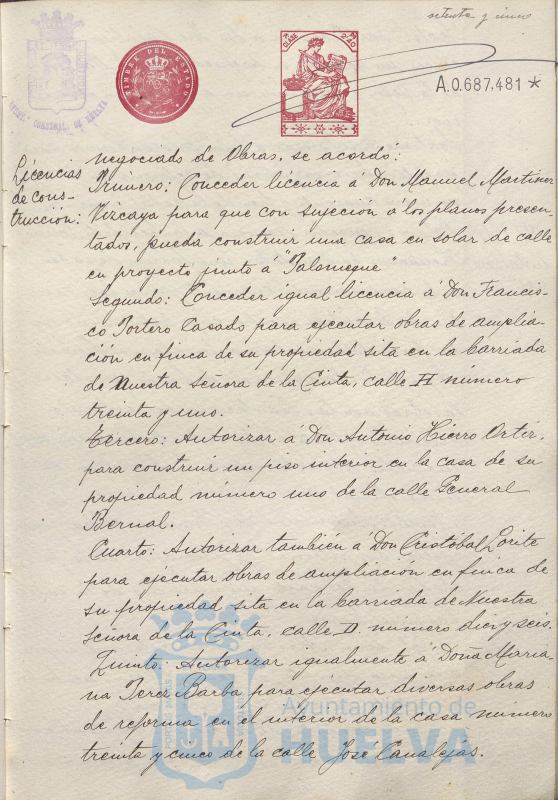 setenta y cinco
TIMBRE DEL ESTADO
CLASE
A.0.687,481 *
Licencias
de cons-
trucción:
negociado de Obras, se acordó:
Primero: Conceder licencia á Don Manuel Martinez
Vizcaya para que con sujeción á los planos presen-
tados, pueda construir una casa en solar de calle
en proyecto junto á "Palomeque"
Segundo: Conceder igual licencia á Don Francis-
co Tortero Casado para ejecutar obras de amplia-
ción en finca de su propiedad sita en la barriada
de Nuestra Señora de la Cinta, calle H número
treinta y uno.
Tercero: Autorizar á Don Antonio Hierro Ortiz,
para construir un piso interior en la casa de su
propiedad número uno de la calle General
Bernal.
Cuarto: Autorizar también á Don Cristóbal Zorite
para ejecutar obras de ampliación en finca de
su propiedad sita en la barriada de Nuestra
Señora de la Cinta, calle D. número diez y seis.
Quinto: Autorizar igualmente á Doña Maria-
na Perez Barba para ejecutar diversas obras
de reforma en el interior de la casa número
treinta y cinco de la calle José Canalejas.
Ayuntamiento de
HUELVA